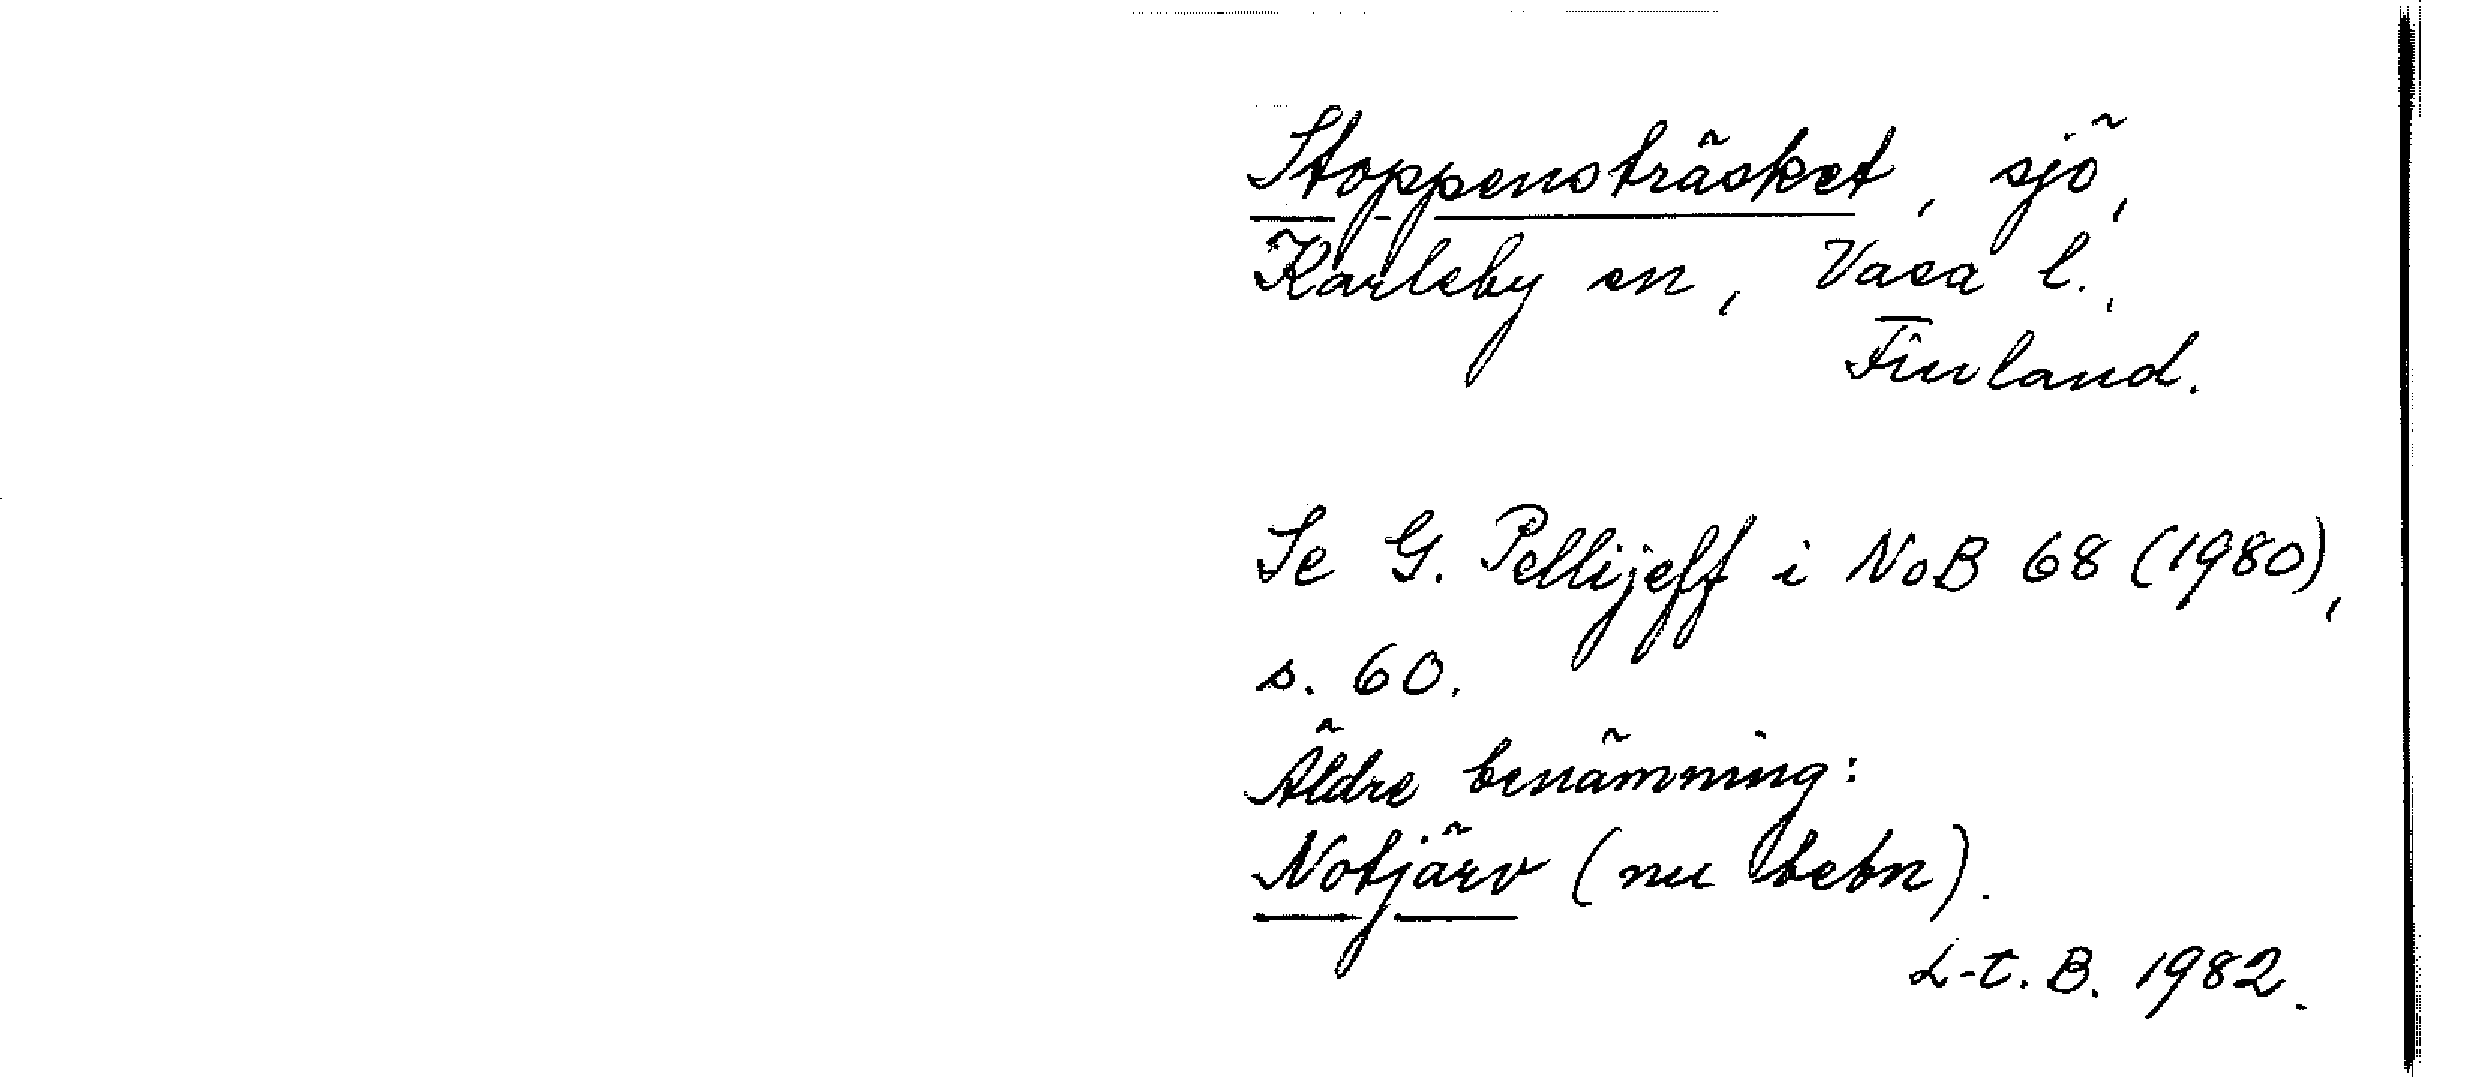 Stoppensträsket, sjö,
Karleby sn, Vasa l.,
Finland.
Se G. Pellijeff i NoB 68 (1980),
s. 60.
Äldre benämning:
Notjärv (nu bebn).
L-t. B. 1982.